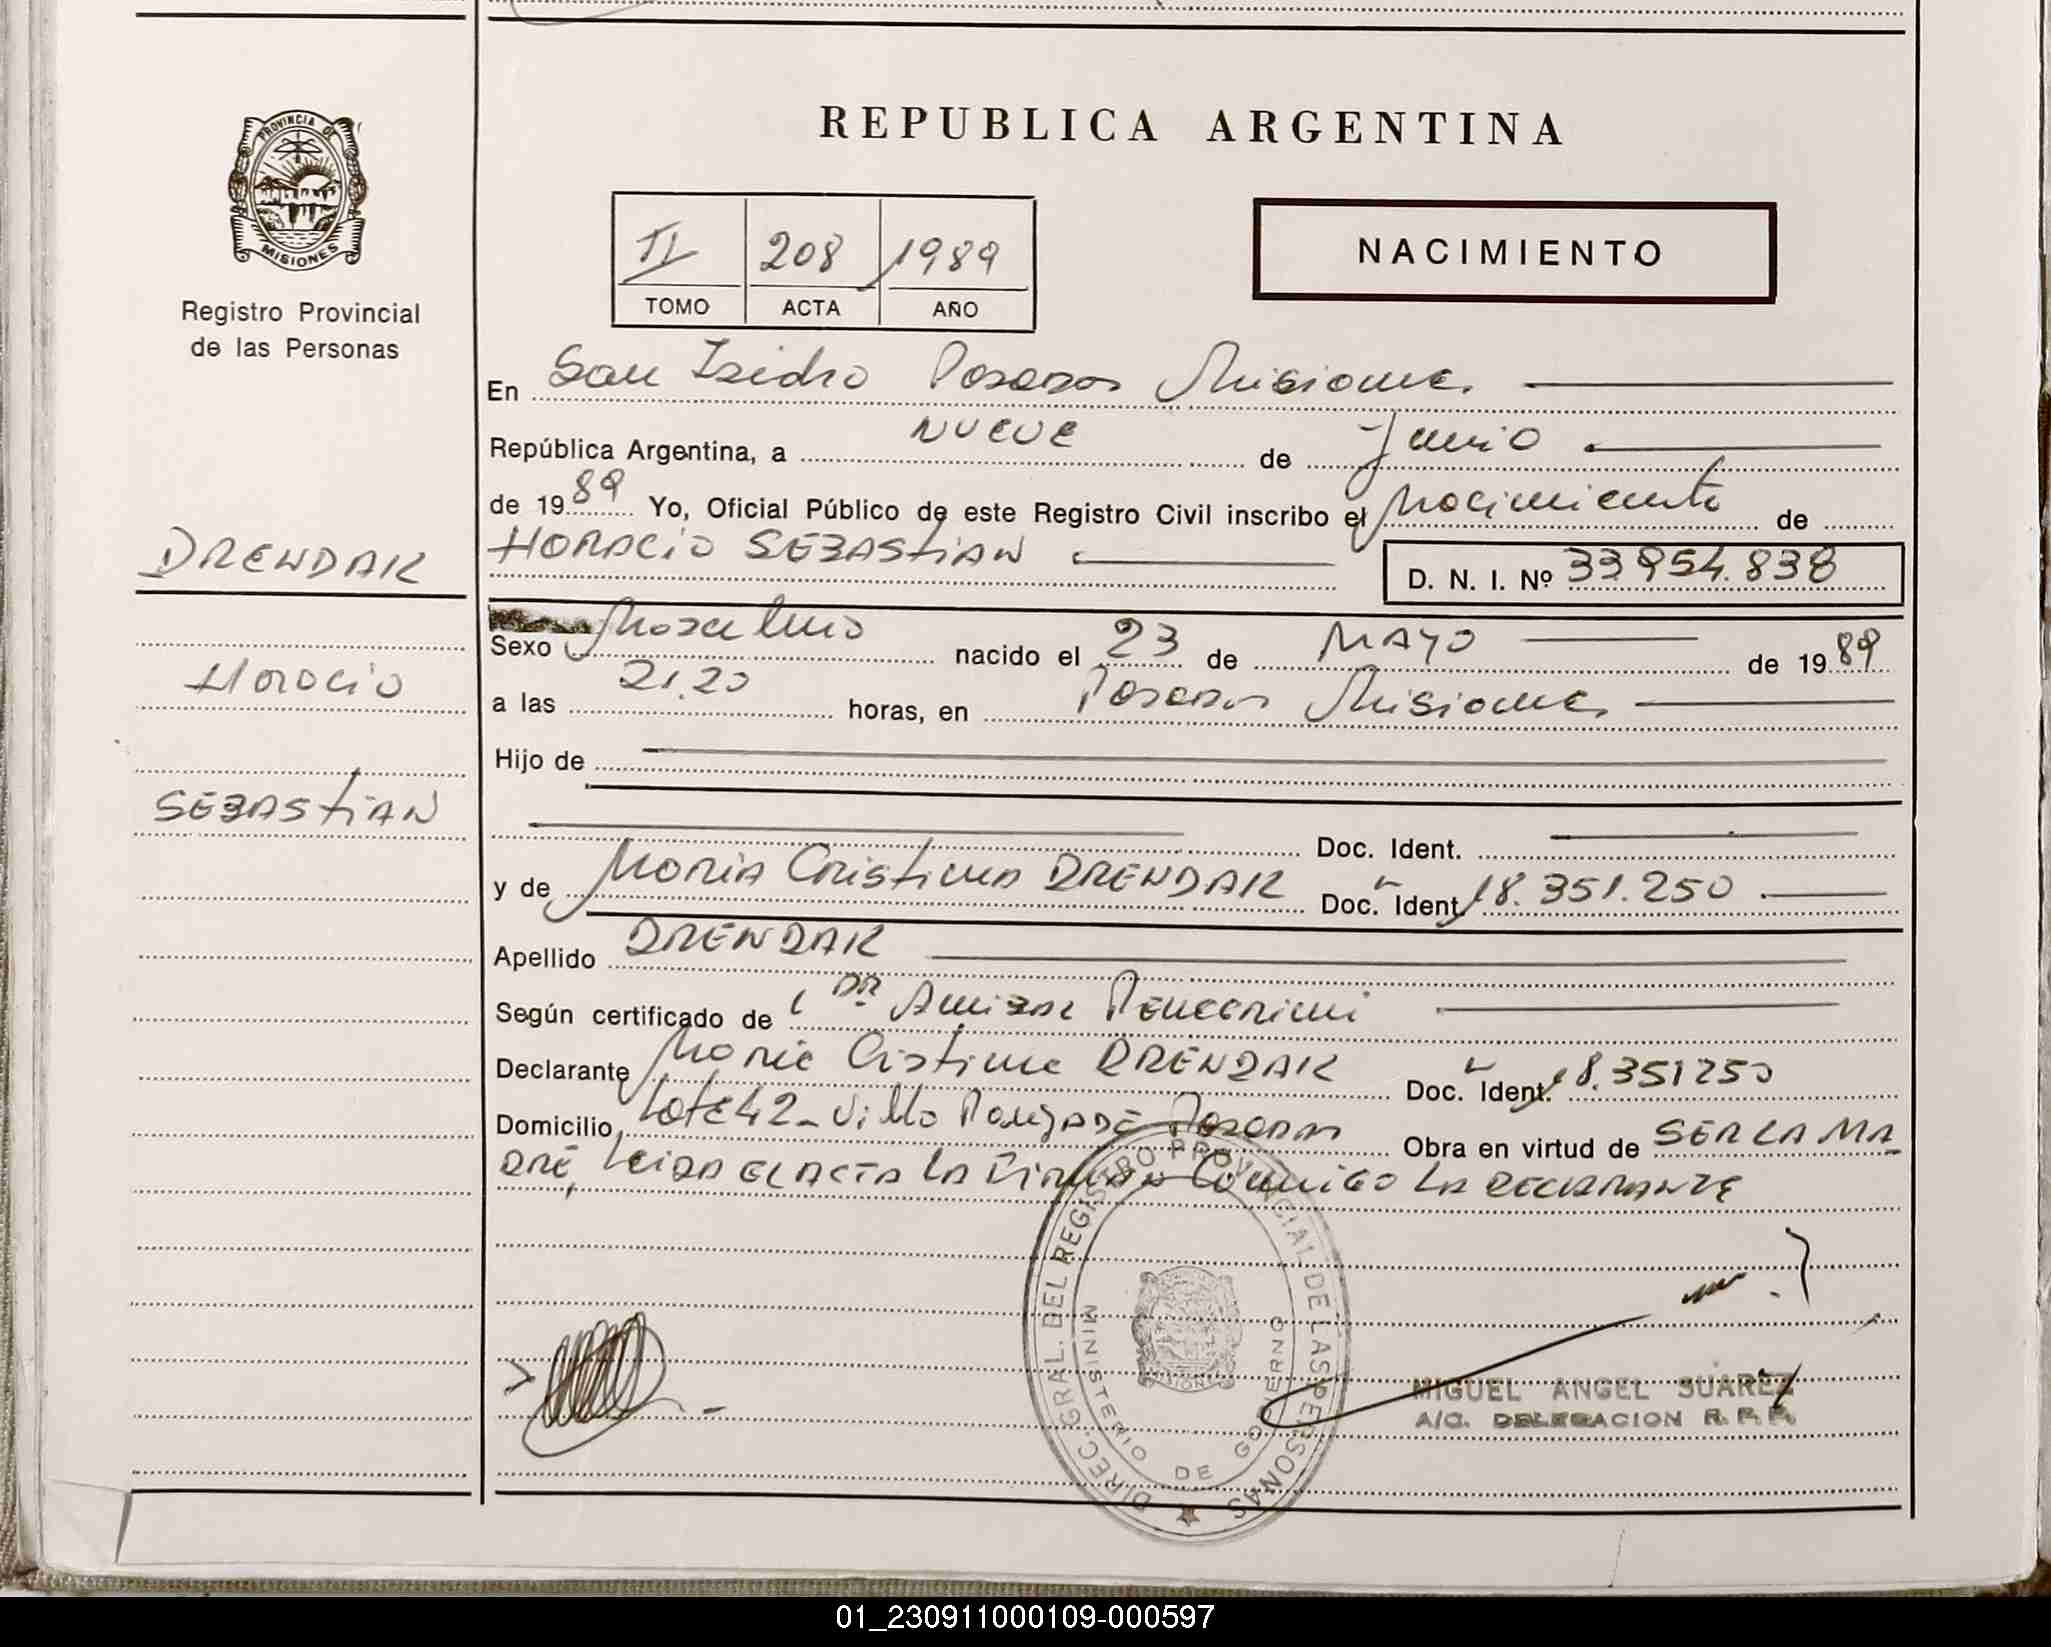 REPUBLICA ARGENTINA
PROVINCIA DE
MISIONES
Registro Provincial
de las Personas
II 208 1989
TOMO ACTA AÑO
NACIMIENTO
En San Isidro Posadas Misiones
República Argentina, a nueve de Junio
de 1989 Yo, Oficial Público de este Registro Civil inscribo el Nacimiento de
HORACIO SEBASTIAN
D. N. I. Nº 33.954.838
DRENDAK
Horacio
SEBASTIAN
Sexo Masculino nacido el 23 de MAYO de 1989
a las 21.20 horas, en Posadas Misiones
Hijo de
Doc. Ident.
y de Maria Cristina DRENDAK Doc. Ident. 18.351.250
Apellido DRENDAK
Según certificado de Dr Amilcar
Declarante Maria Cistina DRENDAK Doc. Ident. 18.351250
Domicilio Lote 42 - Villa Posadas Obra en virtud de SER LA MA
DRE, Leida el acta la firman conmigo la declarante
DIREC. GRAL. DEL REGISTRO PROVINCIAL DE LAS PERSONAS
MINISTERIO DE GOBIERNO
MISIONES
MIGUEL ANGEL SUAREZ
A/C. DELEGACION R. P. P.
01_230911000109-000597